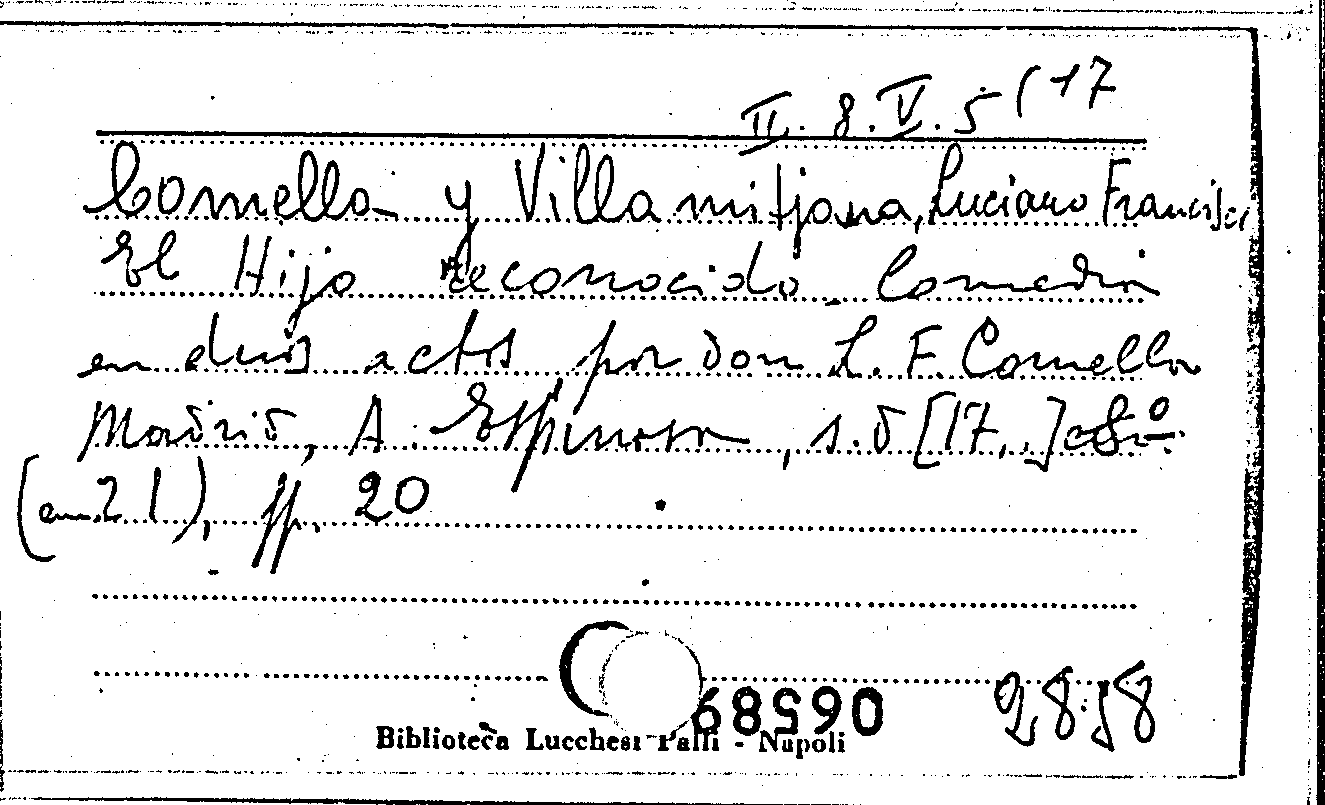 II. 8. V. 5 (17
Comella y Villamitjana, Luciano Francisco
El Hijo reconocido. Comedia
en duos actos por don L. F. Comella
Madrid, A. Espinosa, s. d [17..] 8º
(am. 21), pp. 20
2858
Biblioteca Lucchesi Palli - Napoli